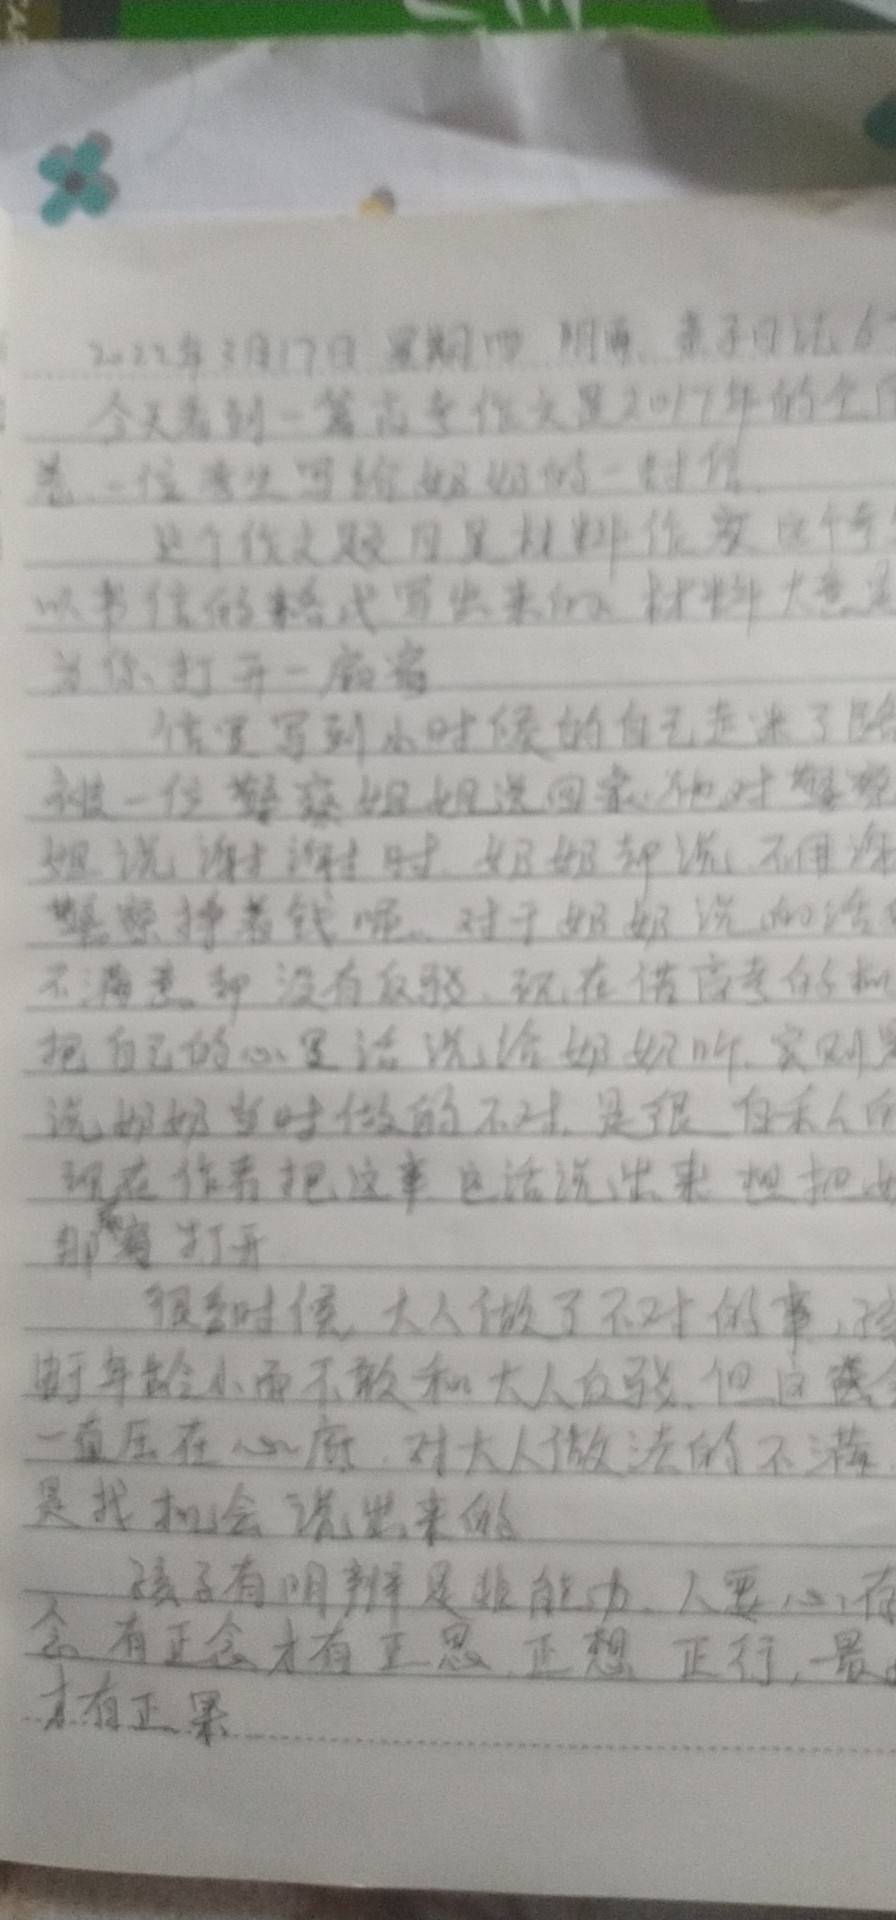 2022年3月17日 星期四 阴雨 亲子日记
今天看到一篇高考作文是2017年的全国
卷.一位考生写给奶奶的一封信.
这个作文题目是材料作文 这个考
以书信的格式写出来的. 材料大意是
为你打开一扇窗
信里写到小时候的自己走迷了路
被一位警察姐姐送回家.他对警察
姐说谢谢时.奶奶却说.不用谢
警察挣着钱呢.对于奶奶说的话
不满意.却没有反驳.现在借高考的机
把自己的心里话说给奶奶听.实则是
说奶奶当时做的不对.是很自私的
现在作者把这事这话说出来 想把
那扇窗打开
很多时候,大人做了不对的事,孩
由于年龄小而不敢和大人反驳.但这
一直压在心底.对大人做法的不满.
是找机会说出来的
孩子有明辨是非能力.人要心存
念.有正念才有正思.正想.正行,最
才有正果